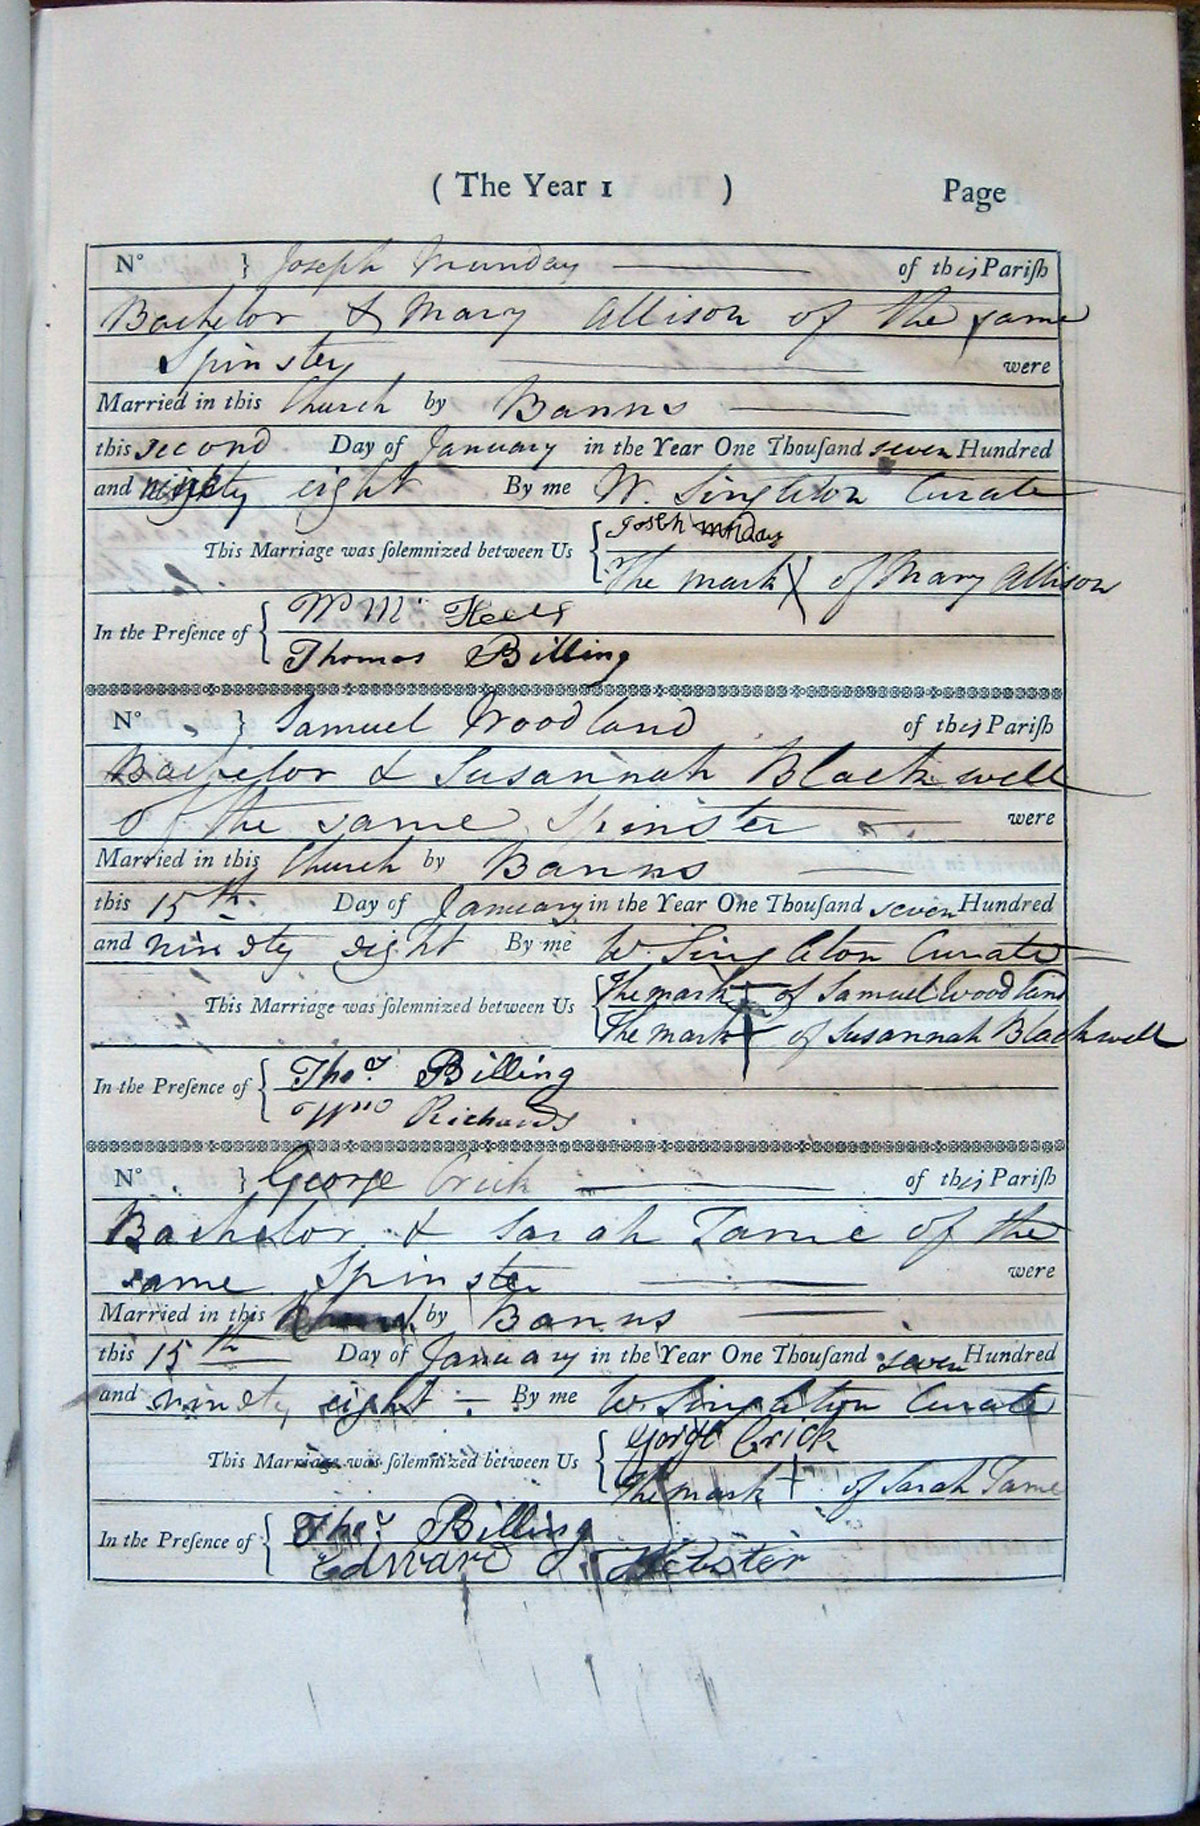 ( The Year 1 ) Page
N° } Joseph Munday of this Pariſh
Bachelor & Mary Allison of the same
Spinster were
Married in this Church by Banns
this second Day of January in the Year One Thouſand seven Hundred
and ninety eight By me W. Singleton Curate
This Marriage was ſolemnized between Us { Joseh Mnday
The mark X of Mary Allison
In the Preſence of { Wm
Thomas Billing
N° } Samuel Woodland of this Pariſh
Bachelor & Susannah Blackwell
of the same Spinster were
Married in this Church by Banns
this 15th. Day of January in the Year One Thouſand seven Hundred
and ninety eight By me W. Singleton Curate
This Marriage was ſolemnized between Us { The mark + of Samuel Woodland
The mark + of Susannah Blackwell
In the Preſence of { Thos. Billing
Wm Richards
N° } George Crick of this Pariſh
Bachelor & Sarah Tame of the
same Spinster were
Married in this by Banns
this 15th Day of January in the Year One Thouſand seven Hundred
and ninety eight By me W. Singleton Curate
This Marriage was ſolemnized between Us { Gorge Crick
The mark + of Sarah Tame
In the Preſence of { Thos. Billing
Edward Webster